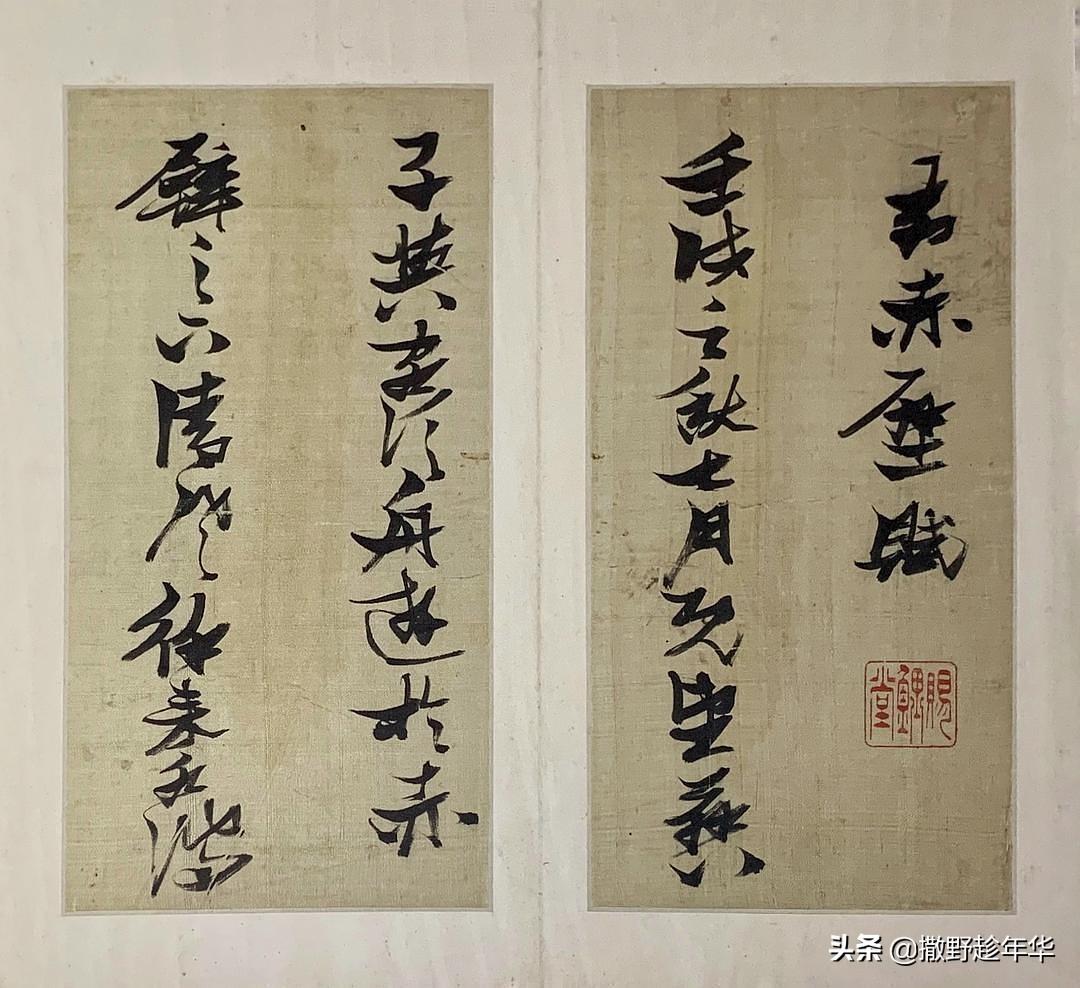 前赤壁賦
壬戌之秋七月既望蘇
子與客泛舟遊於赤
壁之下清風徐來水波
头条 @撒野趁年华